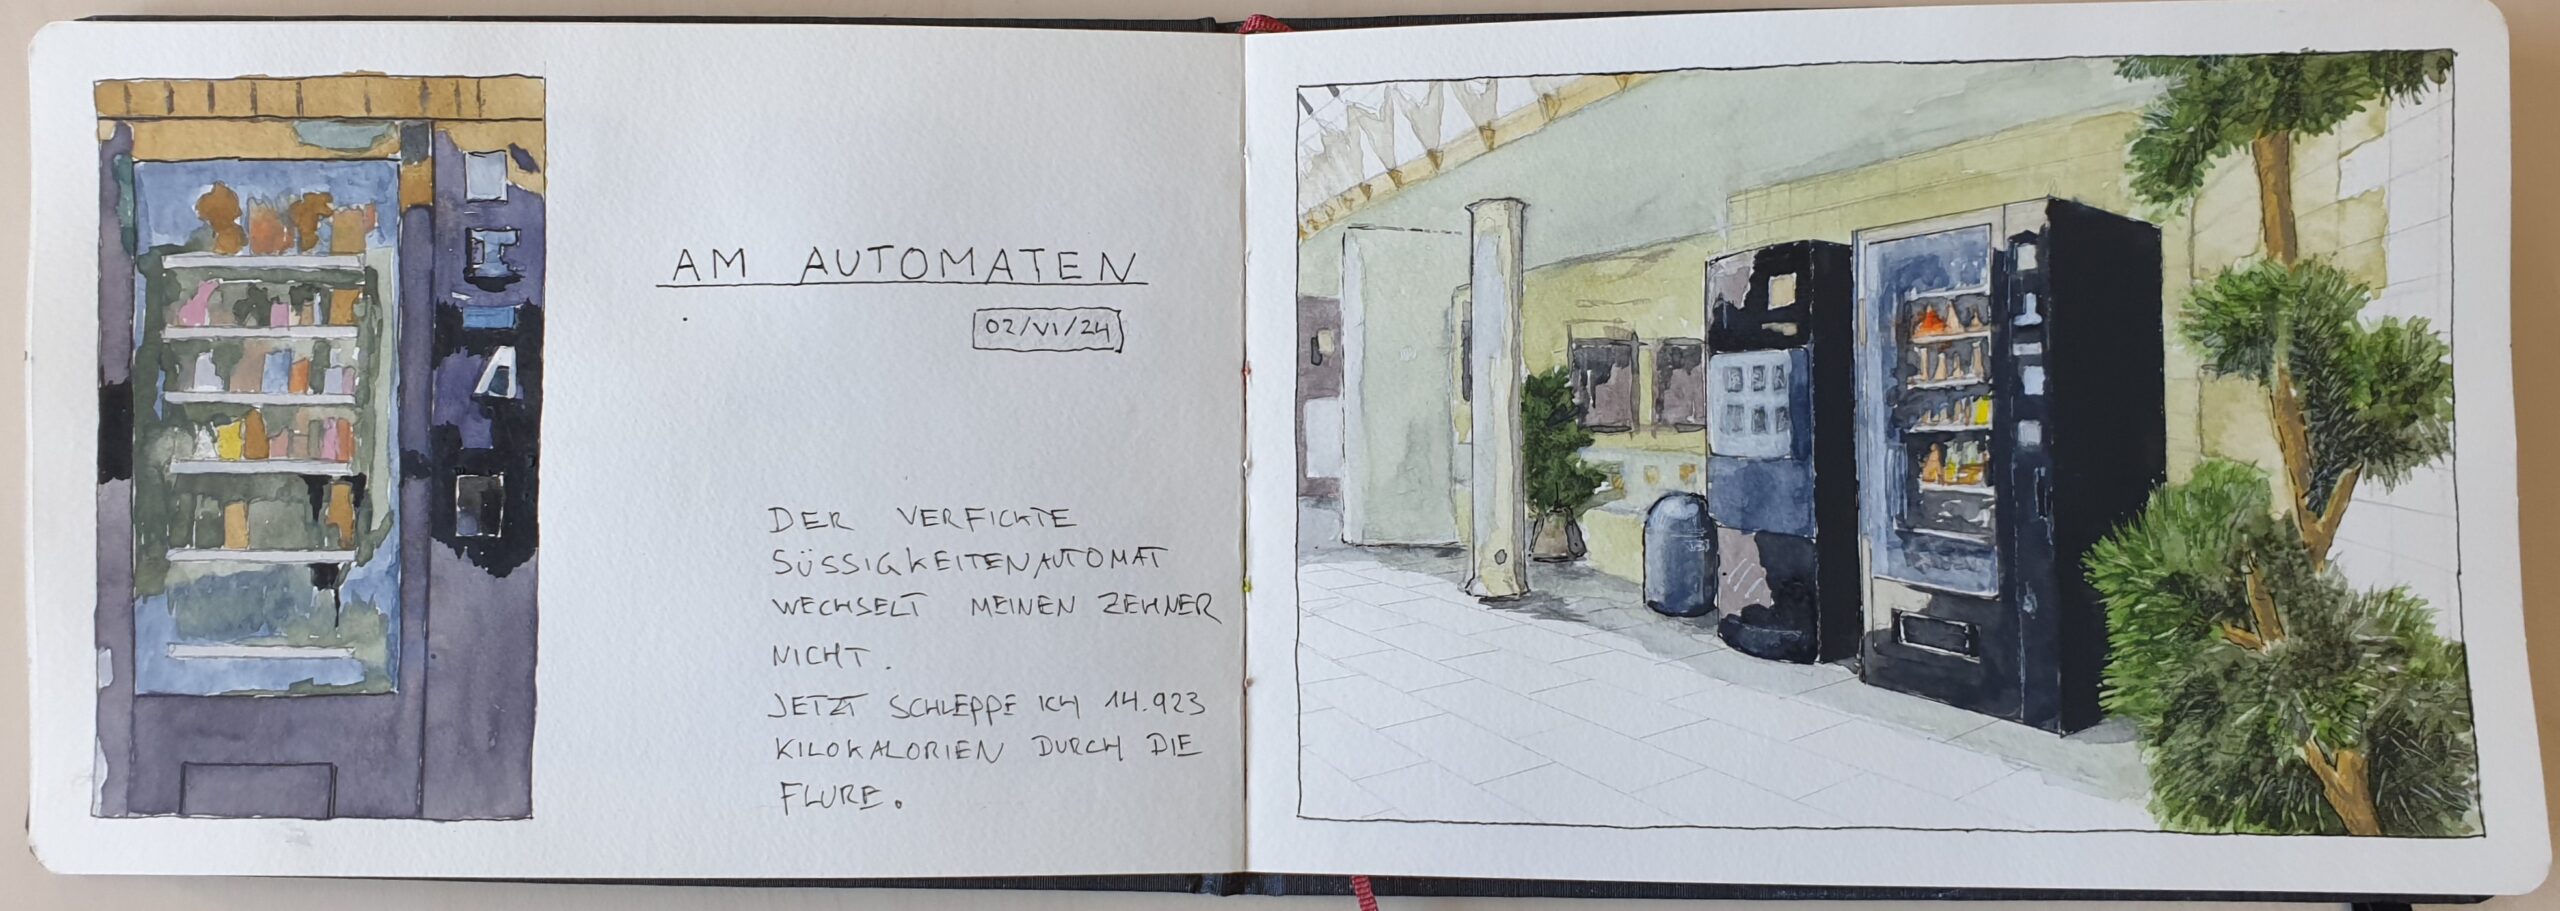 AM AUTOMATEN
02/VI/24
DER VERFICKTE
SÜSSIGKEITENAUTOMAT
WECHSELT MEINEN ZEHNER
NICHT.
JETZT SCHLEPPE ICH 14.923
KILOKALORIEN DURCH DIE
FLURE.